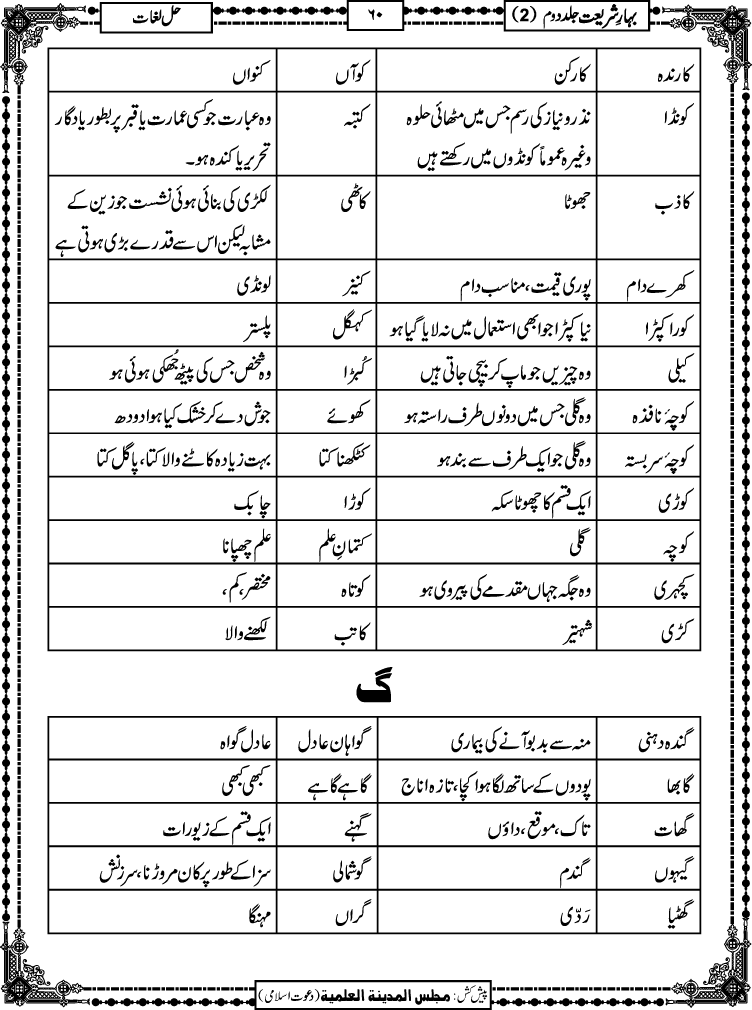 بہارِ شریعت جلد دوم (2) ۶۰ حل لغات
کارندہ کارکن کوآں کنواں
کونڈا نذرو نیاز کی رسم جس میں مٹھائی حلوہ کتبہ وہ عبارت جو کسی عمارت یا قبر پر بطور یادگار
وغیرہ عموماً کونڈوں میں رکھتے ہیں تحریر یا کندہ ہو۔
کاذب جھوٹا کاٹھی لکڑی کی بنائی ہوئی نشست جو زین کے
مشابہ لیکن اس سے قدرے بڑی ہوتی ہے
کھرے دام پوری قیمت، مناسب دام کنیز لونڈی
کورا کپڑا نیا کپڑا جو ابھی استعمال میں نہ لایا گیا ہو کہگل پلستر
کیلی وہ چیزیں جو ماپ کر بیچی جاتی ہیں کُبڑا وہ شخص جس کی پیٹھ جُھکی ہوئی ہو
کوچۂ نافذہ وہ گلی جس میں دونوں طرف راستہ ہو کھوئے جوش دے کر خشک کیا ہوا دودھ
کوچۂ سربستہ وہ گلی جو ایک طرف سے بند ہو کٹکھنا کتا بہت زیادہ کاٹنے والا کتا، پاگل کتا
کوڑی ایک قسم کا چھوٹا سکہ کوڑا چابک
کوچہ گلی کتمانِ علم علم چھپانا
کچہری وہ جگہ جہاں مقدمے کی پیروی ہو کوتاہ مختصر، کم،
کڑی شہتیر کاتب لکھنے والا
گ
گندہ دہنی منہ سے بدبو آنے کی بیماری گواہان عادل عادل گواہ
گابھا پودوں کے ساتھ لگا ہوا کچا، تازہ اناج گاہے گاہے کبھی کبھی
گھات تاک، موقع، داؤں گہنے ایک قسم کے زیورات
گیہوں گندم گوشمالی سزا کے طور پر کان مروڑنا، سرزنش
گھٹیا رَدّی گراں مہنگا
پیش کش: مجلس المدینۃ العلمیۃ (دعوت اسلامی)